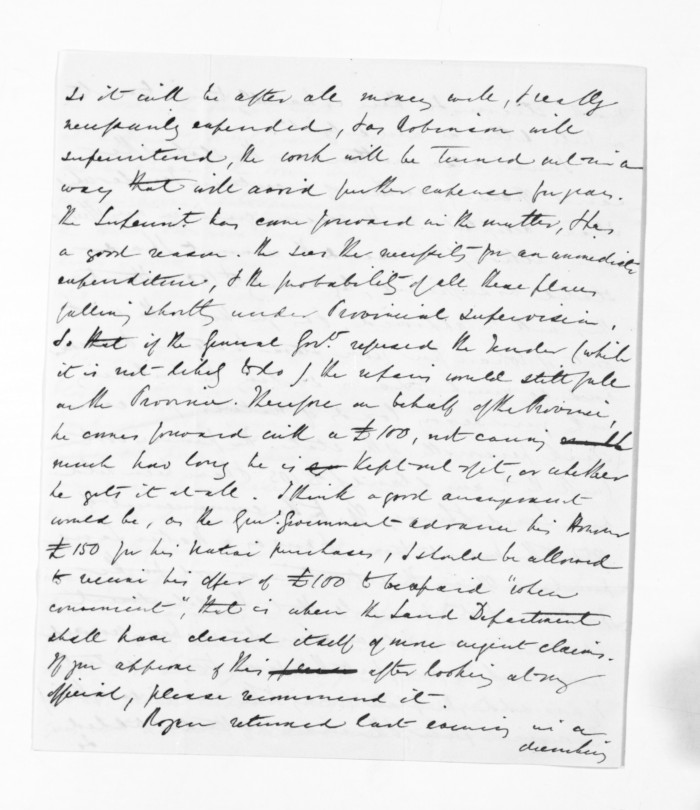 So it will be after all money well, & really
necessarily expended, & as Robinson will
superintend, the work will be turned out in a
way that will avoid further expense for years.
The Superint. has come forward in the matter, & has
a good reason. He sees the necessity for an immediate
expenditure, & the probability of all these places
falling shortly under Provincial supervision.
So that if the General Govt. refused the tender (which
it is not likely to do) the repairs would still fall
on the Province. Therefore on behalf of the Province,
he comes forward with a £100, not caring
much how long he is kept out of it, or whether
he gets it at all. I think a good arrangement
would be, as the Genl. Government advance his Honour
£150 for his native purchases, I should be allowed
to receive his offer of £100 to be repaid "when
convenient", that is when the Land Department
shall have cleared itself of more urgent claims.
If you approve of this after looking at my
official, please recommend it.
Rogan returned last evening in a